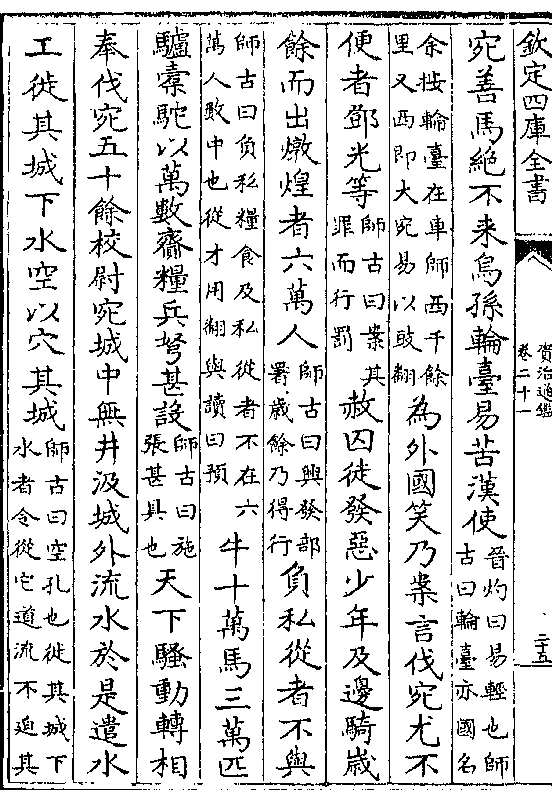 欽定四庫全書
資治通鑑
卷二十一
二十五
宛善馬絶不来烏孫輪臺易苦漢使晉灼曰易輕也師古曰輪臺亦國名
余按輪臺在車師西千餘里又西即大宛易以豉翻為外國笑乃案言伐宛尤不
便者鄧光等師古曰案其罪而行罰赦囚徒發惡少年及邊騎嵗
餘而出燉煌者六萬人師古曰興發部署嵗餘乃得行負私從者不與
師古曰負私糧食及私從者不在六萬人數中也從才用翻與讀曰預牛十萬馬三萬匹
驢橐駝以萬數齎糧兵弩甚設師古曰施張甚具也天下騷動轉相
奉伐宛五十餘校尉宛城中無井汲城外流水於是遣水
工徙其城下水空以穴其城師古曰空孔也徙其城下水者令從它道流不迫其